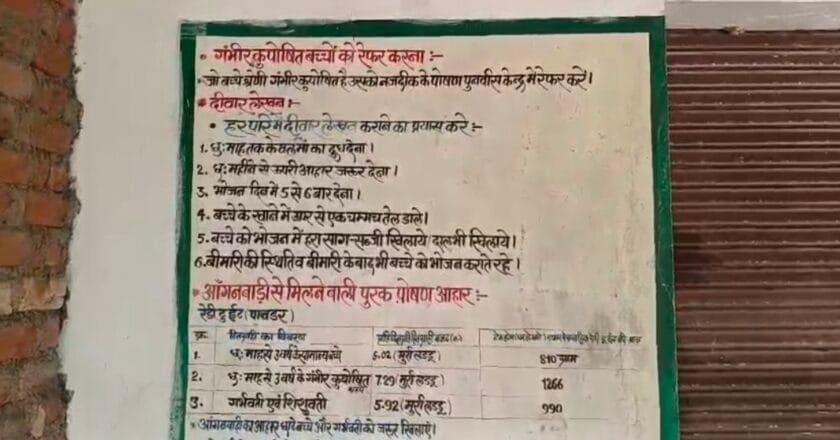 • गंभीर कुपोषित बच्चों को रेफर करना :-
• जो बच्चे श्रेणी गंभीर कुपोषित है उसको नजदीक के पोषण पुनर्वास केन्द्र में रेफर करें।
• दीवार लेखन :-
• हर परि में दीवार लेखन कराने का प्रयास करे :-
1. छः माह तक केवल माँ का दुध देना।
2. छः महीने से ऊपरी आहार जरूर देना।
3. भोजन दिन में 5 से 6 बार देना।
4. बच्चे के खाने में ऊपर से एक चम्मच तेल डाले।
5. बच्चे को भोजन में हरा साग-सब्जी खिलाये, दाल भी खिलाये।
6. बीमारी की स्थिति व बीमारी के बाद भी बच्चे को भोजन कराते रहे।
• आंगनबाड़ी से मिलने वाली पुरक पोषण आहार :-
रेडी टु ईट (पावडर)
क्र. हितग्राही का विवरण
1. छः माह से 3 वर्ष के सामान्य बच्चे 5.02 (मुर्रा लडडू) 810 ग्राम
2. छः माह से 3 वर्ष के गंभीर कुपोषित बच्चे 7.29 (मुर्रा लडडू) 1266
3. गर्भवती एवं शिशुवती 5.92 (मुर्रा लडडू) 990
• आंगनबाड़ी का आहार सारे बच्चे और गर्भवती को जरूर खिलाएं।